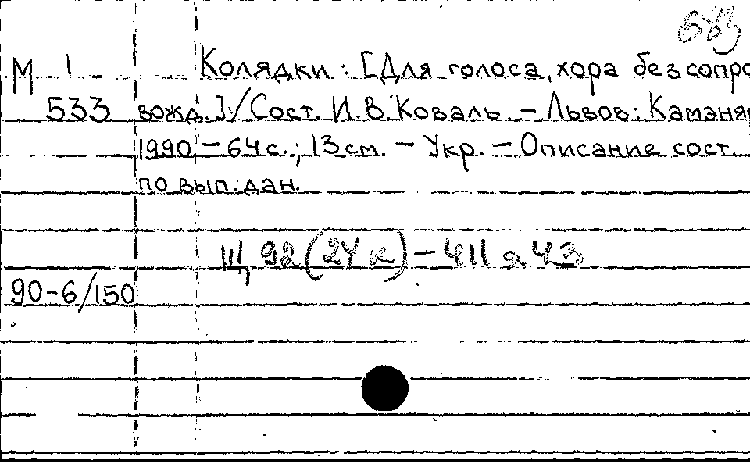 М 1 Колядки: [Для голоса, хора без сопро
533 вожд.]/Сост. И.В.Коваль. – Львов: Каменя
1990 – 64с.; 13см. – Укр. – Описание сост.
по вып.дан.
Щ 92(24к) – 411 я 43
90-6/150